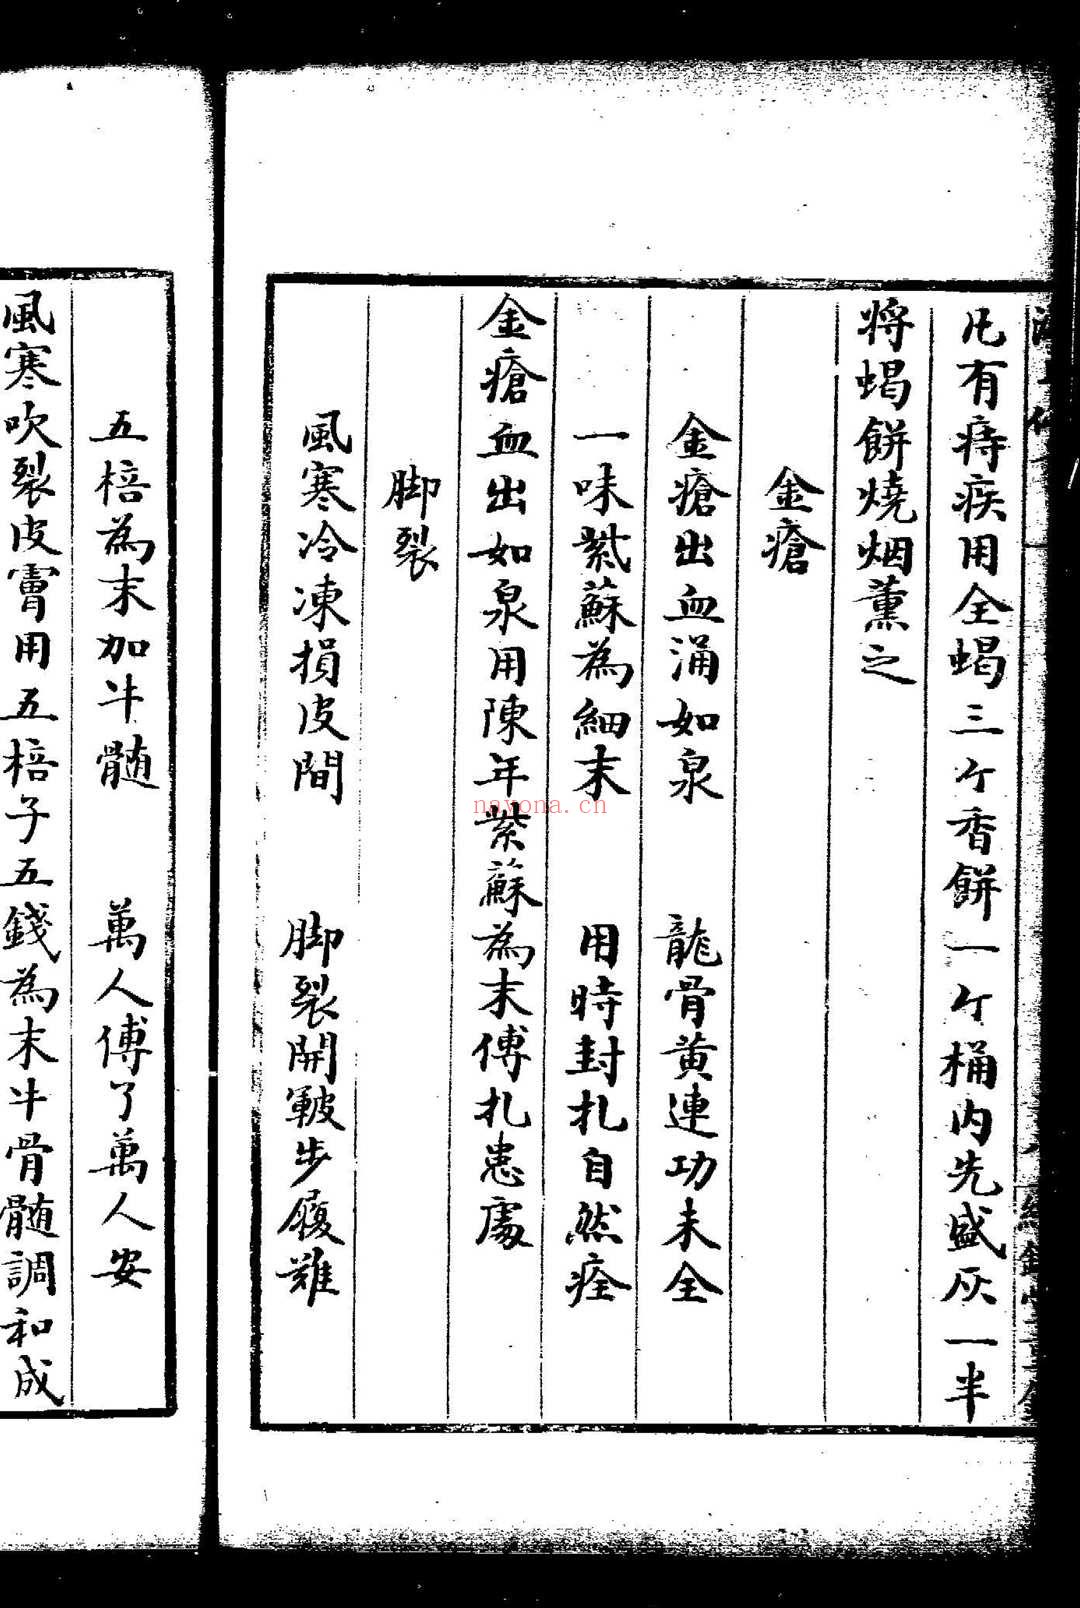 凡有痔疾用全蝎三个香餅一个桶内先盛灰一半
将蝎餅燒烟薰之
金瘡
金瘡出血涌如泉　龍骨黄連功未全
一味紫蘇為細末　用時封扎自然痊
金瘡血出如泉用陳年紫蘇為末傅扎患處
脚裂
風寒冷凍損皮間　脚裂開皸步履難
五棓為末加牛髓　萬人傅了萬人安
風寒吹裂皮膚用五棓子五錢為末牛骨髓調和成
nayona.cn